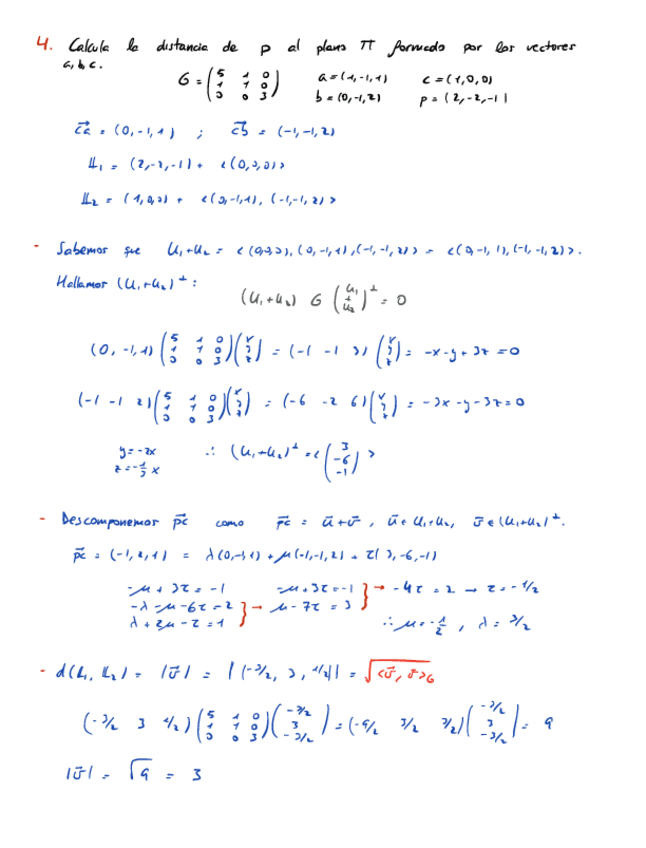 4. Calcula la distancia de p al plano π formado por los vectores
a, b, c.
G = (5 1 0; 1 1 0; 0 0 3) a = (1, -1, 1) c = (1, 0, 0)
b = (0, -1, 2) p = (2, -2, -1)
ca = (0, -1, 1) ; cb = (-1, -1, 2)
𝕃₁ = (2, -2, -1) + <(0, 0, 0)>
𝕃₂ = (1, 0, 0) + <(0, -1, 1), (-1, -1, 2)>
- Sabemos que U₁+U₂ = <(0,0,0), (0, -1, 1), (-1, -1, 2)> = <(0, -1, 1), (-1, -1, 2)>.
Hallamos (U₁+U₂)^⊥ :
(U₁+U₂) G (U₁ + U₂)^⊥ = 0
(0, -1, 1) (5 1 0; 1 1 0; 0 0 3) (x; y; z) = (-1 -1 3) (x; y; z) = -x-y+3z = 0
(-1 -1 2) (5 1 0; 1 1 0; 0 0 3) (x; y; z) = (-6 -2 6) (x; y; z) = -3x-y-3z = 0
y = -2x
z = -1/3 x
∴ (U₁+U₂)^⊥ = <(3; -6; -1)>
- Descomponemos pc como pc = u + v, u ∈ U₁+U₂, v ∈ (U₁+U₂)^⊥.
pc = (-1, 2, 1) = λ(0, -1, 1) + μ(-1, -1, 2) + τ(3, -6, -1)
-μ + 3τ = -1 -μ + 3τ = -1 } → -4τ = 2 → τ = -1/2
-λ - μ - 6τ = 2 } → μ - 7τ = 3
λ + 2μ - τ = 1 ∴ μ = -1/2 , λ = 3/2
- d(𝕃₁, 𝕃₂) = |v| = |(-3/2, 3, 1/2)| = √<v, v>_G
(-3/2 3 1/2) (5 1 0; 1 1 0; 0 0 3) (-3/2; 3; -3/2) = (-9/2 3/2 3/2) (-3/2; 3; -3/2) = 9
|v| = √9 = 3